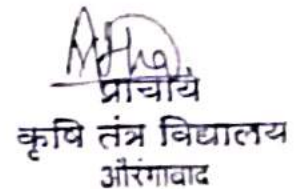 प्राचार्य
कृषि तंत्र विद्यालय
औरंगाबाद